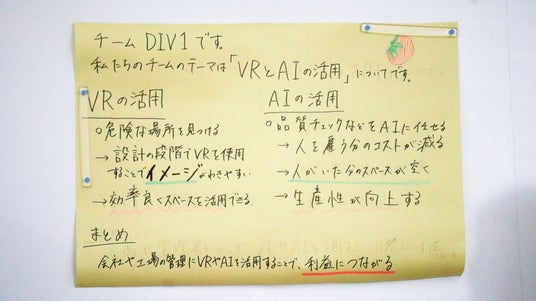 チーム DIV1 です。
私たちのチームのテーマは「VRとAIの活用」についてです。
VRの活用
○危険な場所を見つける
→設計の段階でVRを使用
することでイメージがわきやすい
→効率良くスペースを活用できる
AIの活用
○品質チェックなどをAIに任せる
→人を雇う分のコストが減る
→人がいた分のスペースが空く
→生産性が向上する
まとめ
会社や工場の管理にVRやAIを活用することで、利益につながる